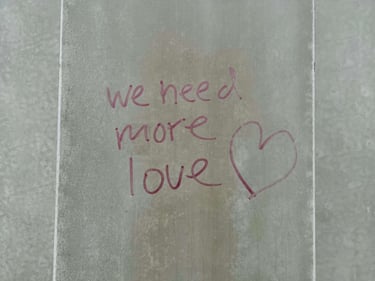 we need
more
love